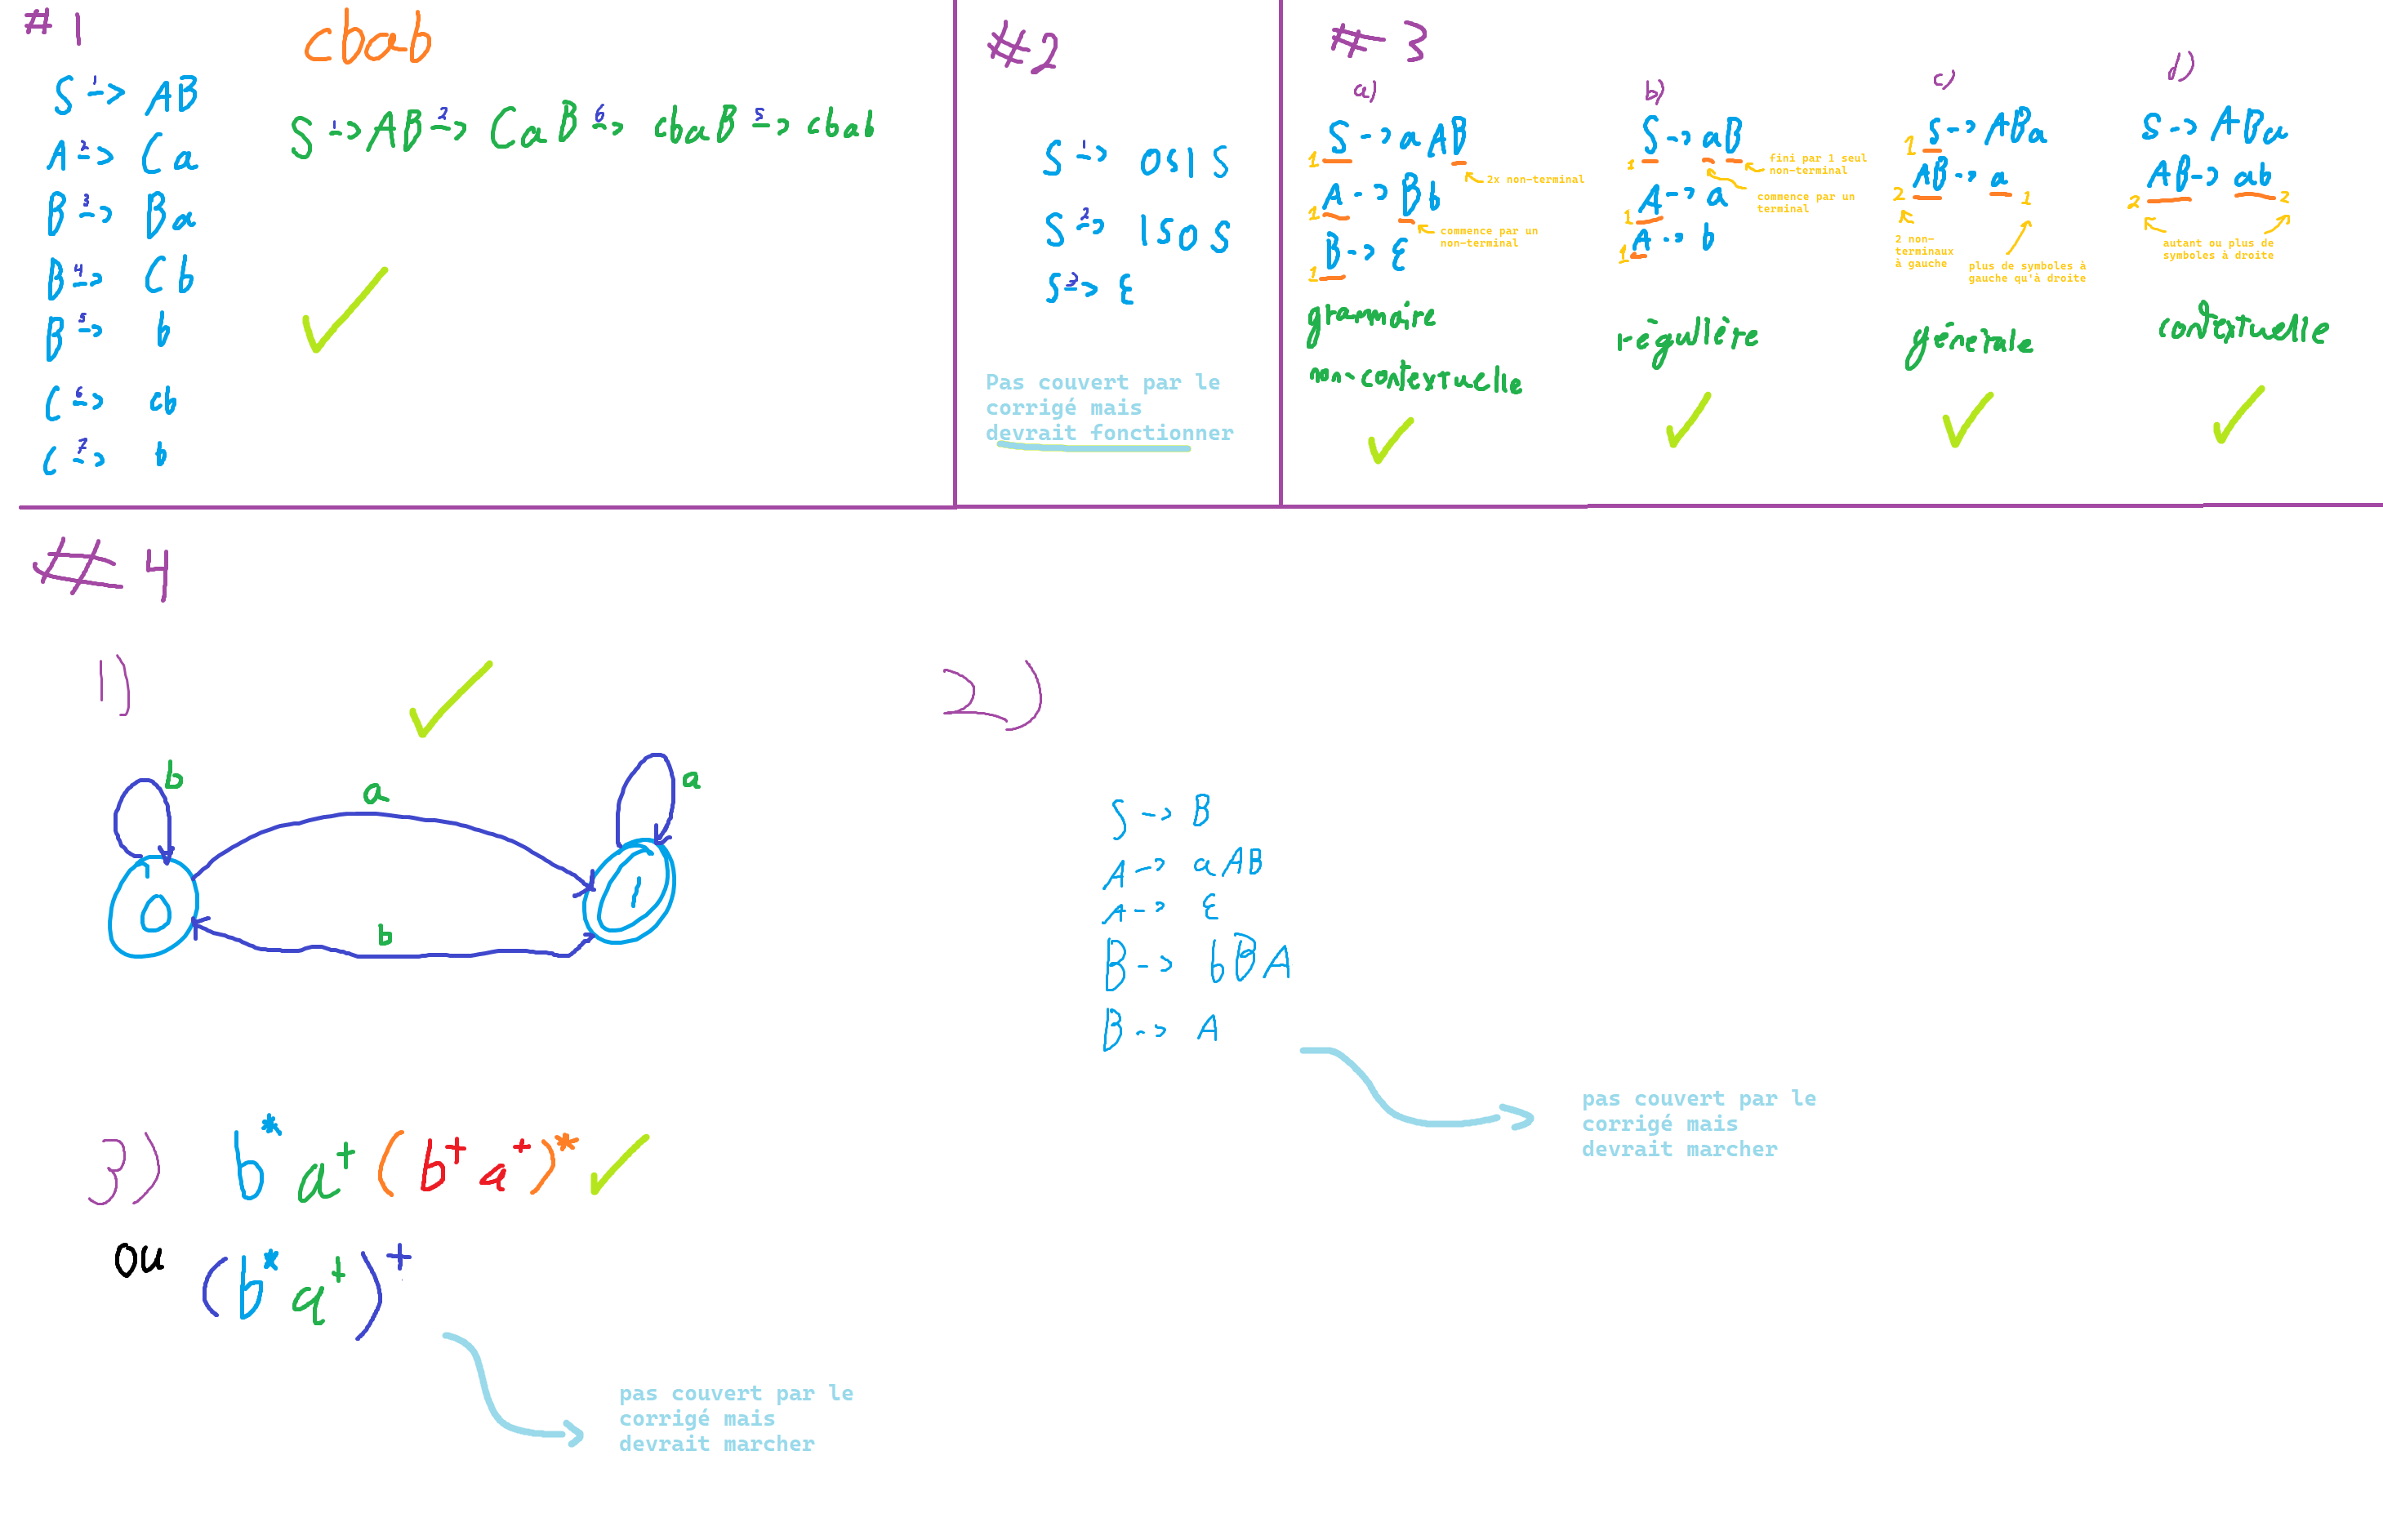 #1
cbab
S -1-> AB
A -2-> Ca
B -3-> Ba
B -4-> Cb
B -5-> b
C -6-> cb
C -7-> b
S -1-> AB -2-> CaB -6-> cbaB -5-> cbab
#2
S -1-> 0S1S
S -2-> 1S0S
S -3-> ε
Pas couvert par le
corrigé mais
devrait fonctionner
#3
a)
S -> aAB
1
2x non-terminal
A -> Bb
1
commence par un
non-terminal
B -> ε
1
grammaire
non-contextuelle
b)
S -> aB
1
fini par 1 seul
non-terminal
commence par un
terminal
A -> a
1
A -> b
1
régulière
c)
S -> ABa
1
AB -> a
2
1
2 non-
terminaux
à gauche
plus de symboles à
gauche qu'à droite
générale
d)
S -> ABa
AB -> ab
2
2
autant ou plus de
symboles à droite
contextuelle
#4
1)
b
a
a
0
1
b
2)
S -> B
A -> aAB
A -> ε
B -> bBA
B -> A
pas couvert par le
corrigé mais
devrait marcher
3) b* a+ (b+ a+)*
ou (b* a+)+
pas couvert par le
corrigé mais
devrait marcher